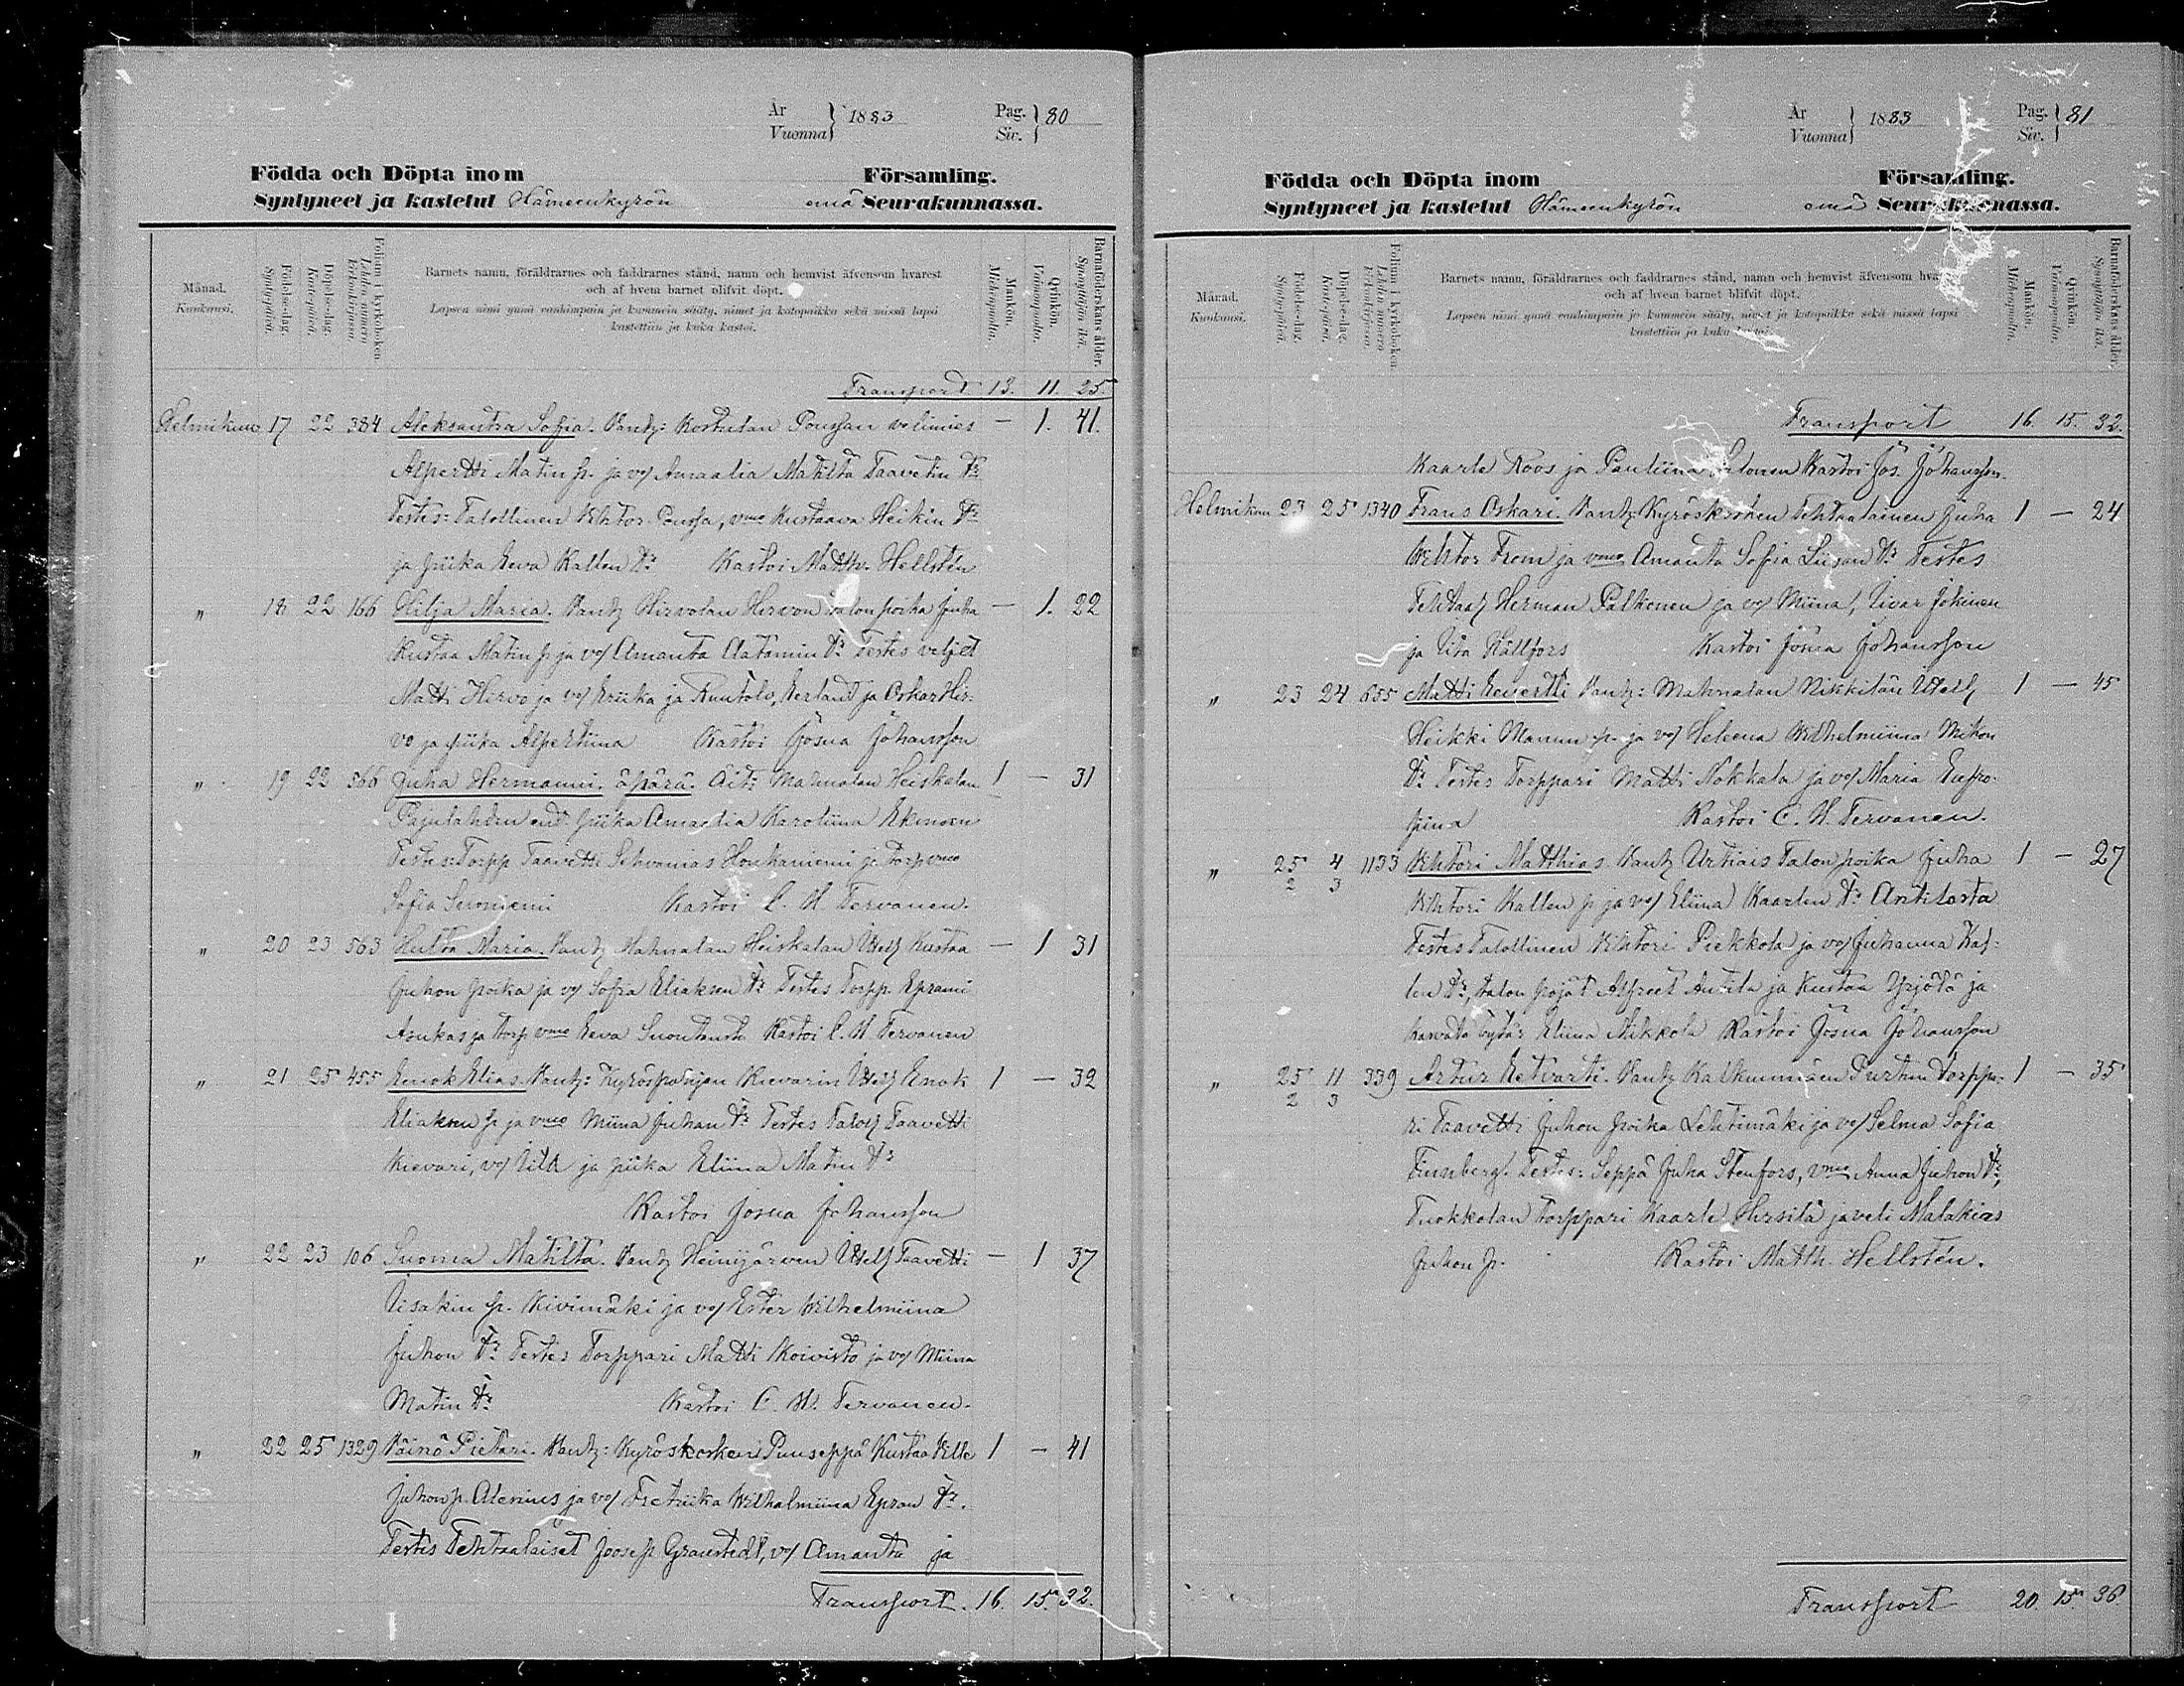 År
Vuonna } 1883 Pag.
Siv. } 80
Födda och Döpta inom Församling.
Syntyneet ja kastetut Hämeenkyrön emä Seurakunnassa.
Månad.
Kuukausi.
Födelse-dag.
Syntypäivä.
Döpelse-dag.
Kastepäivä.
Folium i kyrkoboken.
Lehden numero kirkonkirjassa.
Barnets namn, föräldrarnes och faddrarnes stånd, namn och hemvist äfvensom hvarest
och af hvem barnet blifvit döpt.
Lapsen nimi ynnä vanhimpain ja kummein sääty, nimet ja kotopaikka sekä missä lapsi
kastettiin ja kuka kastoi.
Mankön.
Miehenpuolia.
Qvinkön.
Vaimonpuolia.
Barnaföderskans ålder.
Synnyttäjän ikä.
Transport 13. 11. 25
Helmikuu 17 22 384 Aleksantra Sofia. Vanh: Kostulan Poussan volimies — 1. 41.
Alpertti Matin p. ja vo/ Amaalia Matilta Taavetin tr
Testes: Talollinen Vihtor Poussa, vmo Kustaava Heikin tr
ja piika Eeva Kallen tr Kastoi Matth. Hellstén
" 18 22 166 Hilja Maria. Vanh Hirvolan Hirvon talonpoika Juha — 1. 22
Kustaa Matin p. ja vo/ Amanta Aatamin tr Testes veljet
Matti Hirvo ja vo/ Eriika ja Ruutolo, Eerland ja Oskar Hir-
vo ja piika Alpertiina Kastoi Josua Johansson
" 19 22 566 Juha Hermanni. äpärä. Äiti Mahnalan Heiskalan 1 — 31
Pajulahden ent. piika Amaalia Karoliina Ekonsen
Testes: Torpp Taavetti Sehvanias Honkaniemi ja torp vmo
Sofia Kastoi C. H. Tervanen.
" 20 23 563 Hulta Maria. Vanh Mahnalan Heiskalan Itsell Kustaa — 1 31
Juhon poika ja vo/ Sofia Eliaksen tr Testes Torpp. Eprami
Asukas ja torp vmo Eeva Kastoi C. H. Tervanen
" 21 25 455 Eenok Elias. Vanh: Kyröspohjan Kievarin Itsell Enok 1 — 32
Eliaksen p. ja vmo Miina Juhan tr Testes Taloll Taavetti
Kievari, vo/ Iita ja piika Eliina Matin tr
Kastoi Josua Johansson
" 22 23 106 Suoma Matilta. Vanh Heinijärven Itsell Taavetti — 1 37
Iisakin p. Kivimäki ja vo/ Ester Wilhelmiina
Juhon tr Testes Torppari Matti Koivisto ja vo/ Miina
Matin tr Kastoi C. H. Tervanen.
" 22 25 1329 Väinö Pietari. Vanh: Kyröskosken Puuseppä Kustaa Ville 1 — 41
Juhon p. Alenius ja vo/ Fretriika Wilhelmiina Epran tr.
Testes Tehtaalaiset Joosep Granstedt, vo/ Amanta ja
Transport. 16. 15. 32.
År
Vuonna } 1883 Pag.
Siv. } 81
Födda och Döpta inom Församling.
Syntyneet ja kastetut Hämeenkyrön emä Seurakunnassa.
Månad.
Kuukausi.
Födelse-dag.
Syntypäivä.
Döpelse-dag.
Kastepäivä.
Folium i kyrkoboken.
Lehden numero kirkonkirjassa.
Barnets namn, föräldrarnes och faddrarnes stånd, namn och hemvist äfvensom
och af hvem barnet blifvit döpt.
Lapsen nimi ynnä vanhimpain ja kummein sääty, nimet ja kotopaikka sekä missä lapsi
kastettiin ja kuka kastoi.
Mankön.
Miehenpuolia.
Qvinkön.
Vaimonpuolia.
Barnaföderskans ålder.
Synnyttäjän ikä.
Transport 16. 15. 32.
Kaarle Roos ja Pauliina Salonen Kastoi Jos. Johansson.
Helmikuu 23 25 1340 Frans Oskari. Vanh. Kyröskosken Tehtaalainen Juha 1 — 24
Vihtor Frem ja vmo Amanta Sofia Liisan tr Testes
Tehtaal Herman Palkonen ja vo/ Miina, Iivar Jokinen
ja Iita Hällfors Kastoi Josua Johansson
" 23 24 655 Matti Eevertti Vanh: Mahnalan Nikkilän Itsell 1 — 45
Heikki Manun p. ja vo/ Heleena Wilhelmiina Mikon
tr Testes Torppari Matti Nokkala ja vo/ Maria Eufro-
siina Kastoi C. H. Tervanen.
" 25/2 4/3 1133 Vihtori Matthias. Vanh Urtiais Talon poika Juha 1 — 27
Vihtori Kallen p. ja vo/ Eliina Kaarlen tr Anttilasta
Testes Talollinen Vihtori Piekkola ja vo/ Juhanna Kal-
len tr, talon pojat Alfreet Anttila ja Kustaa Yrjölä ja
tytär Eliina Mikkola Kastoi Josua Johansson
" 25/2 11/3 339 Artur Eetvartti. Vanh Kalkunmäen Turkin torppa- 1 — 35
ri Taavetti Juhon poika Lehtimäki ja vo/ Selma Sofia
Finnberg. Testes: Seppä Juha Stenfors, vmo Anna Juhon tr,
Tuokkolan torppari Kaarle Hirsilä ja veli Malakias
Juhon p. Kastoi Matth. Hellstén.
Transport 20. 15. 36.